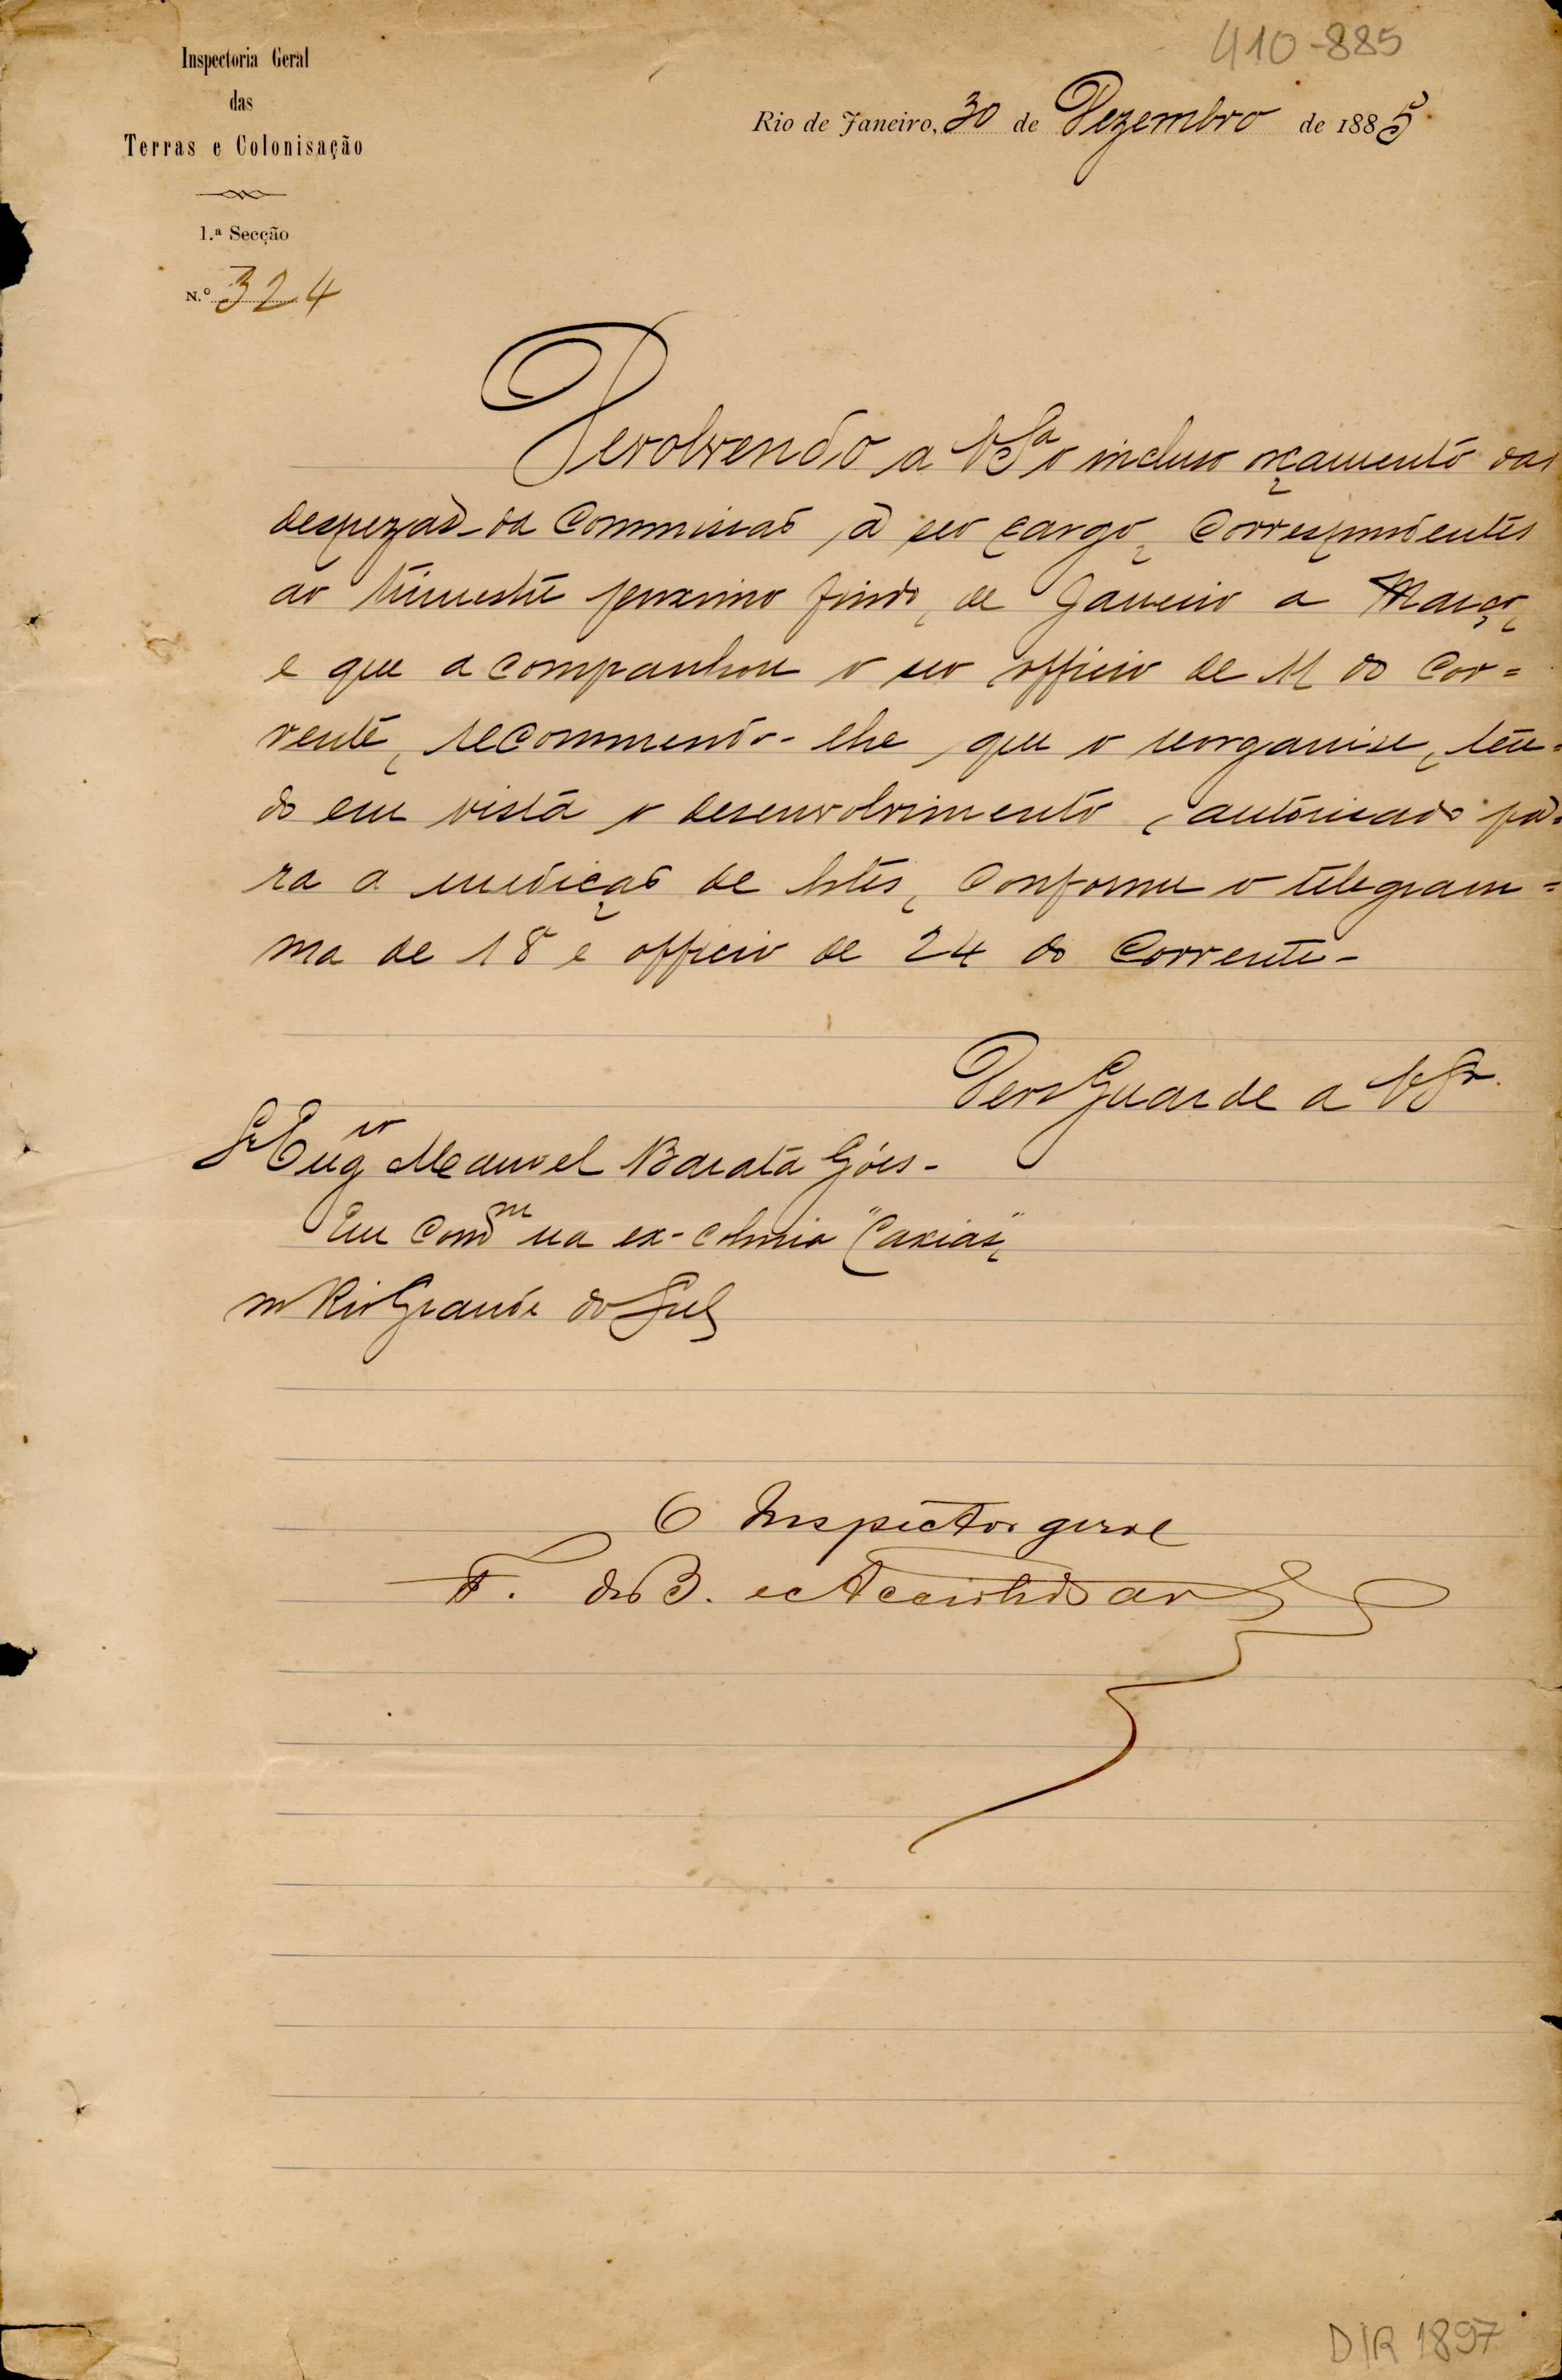 410-885
Inspectoria Geral
das
Terras e Colonisação
1.ª Secção
N.º 324
Rio de Janeiro, 30 de Dezembro de 1885
Devolvendo a VSª o incluso orçamento das
despezas da Commissão, a seo cargo, correspondentes
ao trimestre proximo findo, de Janeiro a Março,
e que acompanhou o seo officio de 11 do cor=
rente, recommendo-lhe, que o reorganise, ten=
do em vista o desenvolvimento, autorisado pa=
ra a medição de lotes, conforme o telegram=
ma de 18 e officio de 24 do corrente-
Deos Guarde a VSª
Sr Engro Manoel Barata Góes-
Em Comm na ex-colonia "Caxias",
no Rio Grande do Sul
O Inspector geral
F. de B. e Accioli de
DIR 1897